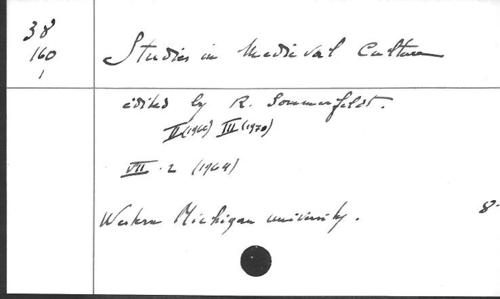 38
160
1
Studies in Medieval Culture
edited by R. Sommerfeldt.
II (1966) III (1970)
VIII. 2 (1964)
Western Michigan university.
8-